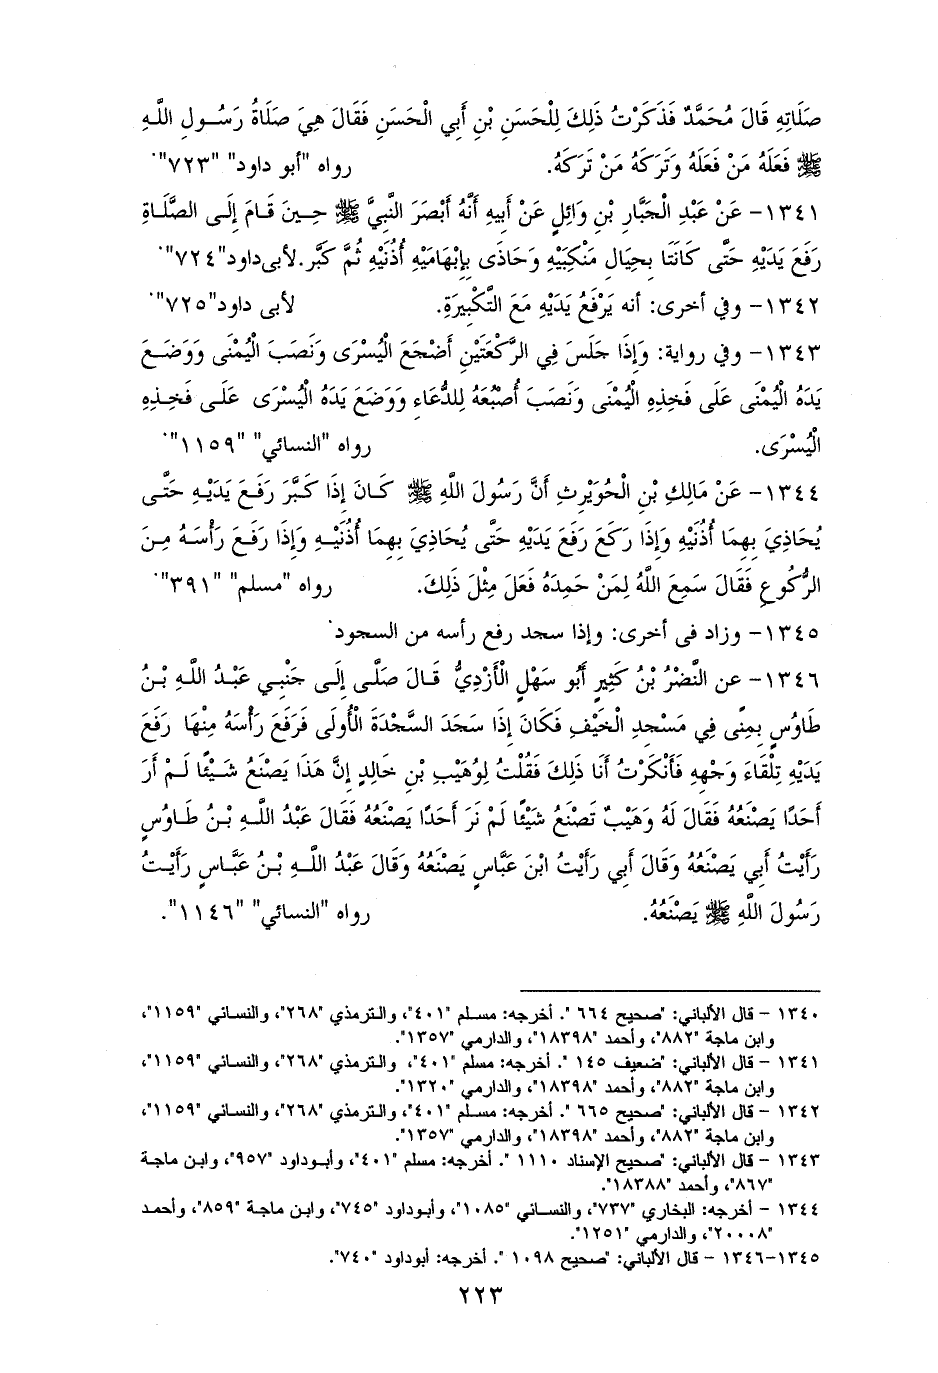 صَلَاتِهِ قَالَ مُحَمَّدٌ فَذَكَرْتُ ذَلِكَ لِلْحَسَنِ بْنِ أَبِي الْحَسَنِ فَقَالَ هِيَ صَلَاةُ رَسُولِ اللَّهِ
ﷺ فَعَلَهُ مَنْ فَعَلَهُ وَتَرَكَهُ مَنْ تَرَكَهُ. رواه "أبو داود" "٧٢٣".
١٣٤١- عَنْ عَبْدِ الْجَبَّارِ بْنِ وَائِلٍ عَنْ أَبِيهِ أَنَّهُ أَبْصَرَ النَّبِيَّ ﷺ حِينَ قَامَ إِلَى الصَّلَاةِ
رَفَعَ يَدَيْهِ حَتَّى كَانَتَا بِحِيَالِ مَنْكِبَيْهِ وَحَاذَى بِإِبْهَامَيْهِ أُذُنَيْهِ ثُمَّ كَبَّرَ. لأبى داود"٧٢٤".
١٣٤٢- وفي أخرى: أنه يَرْفَعُ يَدَيْهِ مَعَ التَّكْبِيرَةِ. لأبى داود"٧٢٥".
١٣٤٣- وفي رواية: وَإِذَا جَلَسَ فِي الرَّكْعَتَيْنِ أَضْجَعَ الْيُسْرَى وَنَصَبَ الْيُمْنَى وَوَضَعَ
يَدَهُ الْيُمْنَى عَلَى فَخِذِهِ الْيُمْنَى وَنَصَبَ أُصْبُعَهُ لِلدُّعَاءِ وَوَضَعَ يَدَهُ الْيُسْرَى عَلَى فَخِذِهِ
الْيُسْرَى. رواه "النسائي" "١١٥٩".
١٣٤٤- عَنْ مَالِكِ بْنِ الْحُوَيْرِثِ أَنَّ رَسُولَ اللَّهِ ﷺ كَانَ إِذَا كَبَّرَ رَفَعَ يَدَيْهِ حَتَّى
يُحَاذِيَ بِهِمَا أُذُنَيْهِ وَإِذَا رَكَعَ رَفَعَ يَدَيْهِ حَتَّى يُحَاذِيَ بِهِمَا أُذُنَيْهِ وَإِذَا رَفَعَ رَأْسَهُ مِنَ
الرُّكُوعِ فَقَالَ سَمِعَ اللَّهُ لِمَنْ حَمِدَهُ فَعَلَ مِثْلَ ذَلِكَ. رواه "مسلم" "٣٩١".
١٣٤٥- وزاد فى أخرى: وإذا سجد رفع رأسه من السجود.
١٣٤٦- عن النَّضْرُ بْنُ كَثِيرٍ أَبُو سَهْلٍ الْأَزْدِيُّ قَالَ صَلَّى إِلَى جَنْبِي عَبْدُ اللَّهِ بْنُ
طَاوُسٍ بِمِنًى فِي مَسْجِدِ الْخَيْفِ فَكَانَ إِذَا سَجَدَ السَّجْدَةَ الْأُولَى فَرَفَعَ رَأْسَهُ مِنْهَا رَفَعَ
يَدَيْهِ تِلْقَاءَ وَجْهِهِ فَأَنْكَرْتُ أَنَا ذَلِكَ فَقُلْتُ لِوُهَيْبِ بْنِ خَالِدٍ إِنَّ هَذَا يَصْنَعُ شَيْئًا لَمْ أَرَ
أَحَدًا يَصْنَعُهُ فَقَالَ لَهُ وَهَيْبٌ تَصْنَعُ شَيْئًا لَمْ نَرَ أَحَدًا يَصْنَعُهُ فَقَالَ عَبْدُ اللَّهِ بْنُ طَاوُسٍ
رَأَيْتُ أَبِي يَصْنَعُهُ وَقَالَ أَبِي رَأَيْتُ ابْنَ عَبَّاسٍ يَصْنَعُهُ وَقَالَ عَبْدُ اللَّهِ بْنُ عَبَّاسٍ رَأَيْتُ
رَسُولَ اللَّهِ ﷺ يَصْنَعُهُ. رواه "النسائي" "١١٤٦".
١٣٤٠ - قال الألباني: "صحيح ٦٦٤ ". أخرجه: مسلم "٤٠١"، والترمذي "٢٦٨"، والنسائي "١١٥٩"،
وابن ماجة "٨٨٢"، وأحمد "١٨٣٩٨"، والدارمي "١٣٥٧".
١٣٤١ - قال الألباني: "ضعيف ١٤٥ ". أخرجه: مسلم "٤٠١"، والترمذي "٢٦٨"، والنسائي "١١٥٩"،
وابن ماجة "٨٨٢"، وأحمد "١٨٣٩٨"، والدارمي "١٣٢٠".
١٣٤٢ - قال الألباني: "صحيح ٦٦٥ ". أخرجه: مسلم "٤٠١"، والترمذي "٢٦٨"، والنسائي "١١٥٩"،
وابن ماجة "٨٨٢"، وأحمد "١٨٣٩٨"، والدارمي "١٣٥٧".
١٣٤٣ - قال الألباني: "صحيح الإسناد ١١١٠ ". أخرجه: مسلم "٤٠١"، وأبوداود "٩٥٧"، وابن ماجة
"٨٦٧"، وأحمد "١٨٣٨٨".
١٣٤٤ - أخرجه: البخاري "٧٣٧"، والنسائي "١٠٨٥"، وأبوداود "٧٤٥"، وابن ماجة "٨٥٩"، وأحمد
"٢٠٠٠٨"، والدارمي "١٢٥١".
١٣٤٥-١٣٤٦ - قال الألباني: "صحيح ١٠٩٨ ". أخرجه: أبوداود "٧٤٠".
٢٢٣